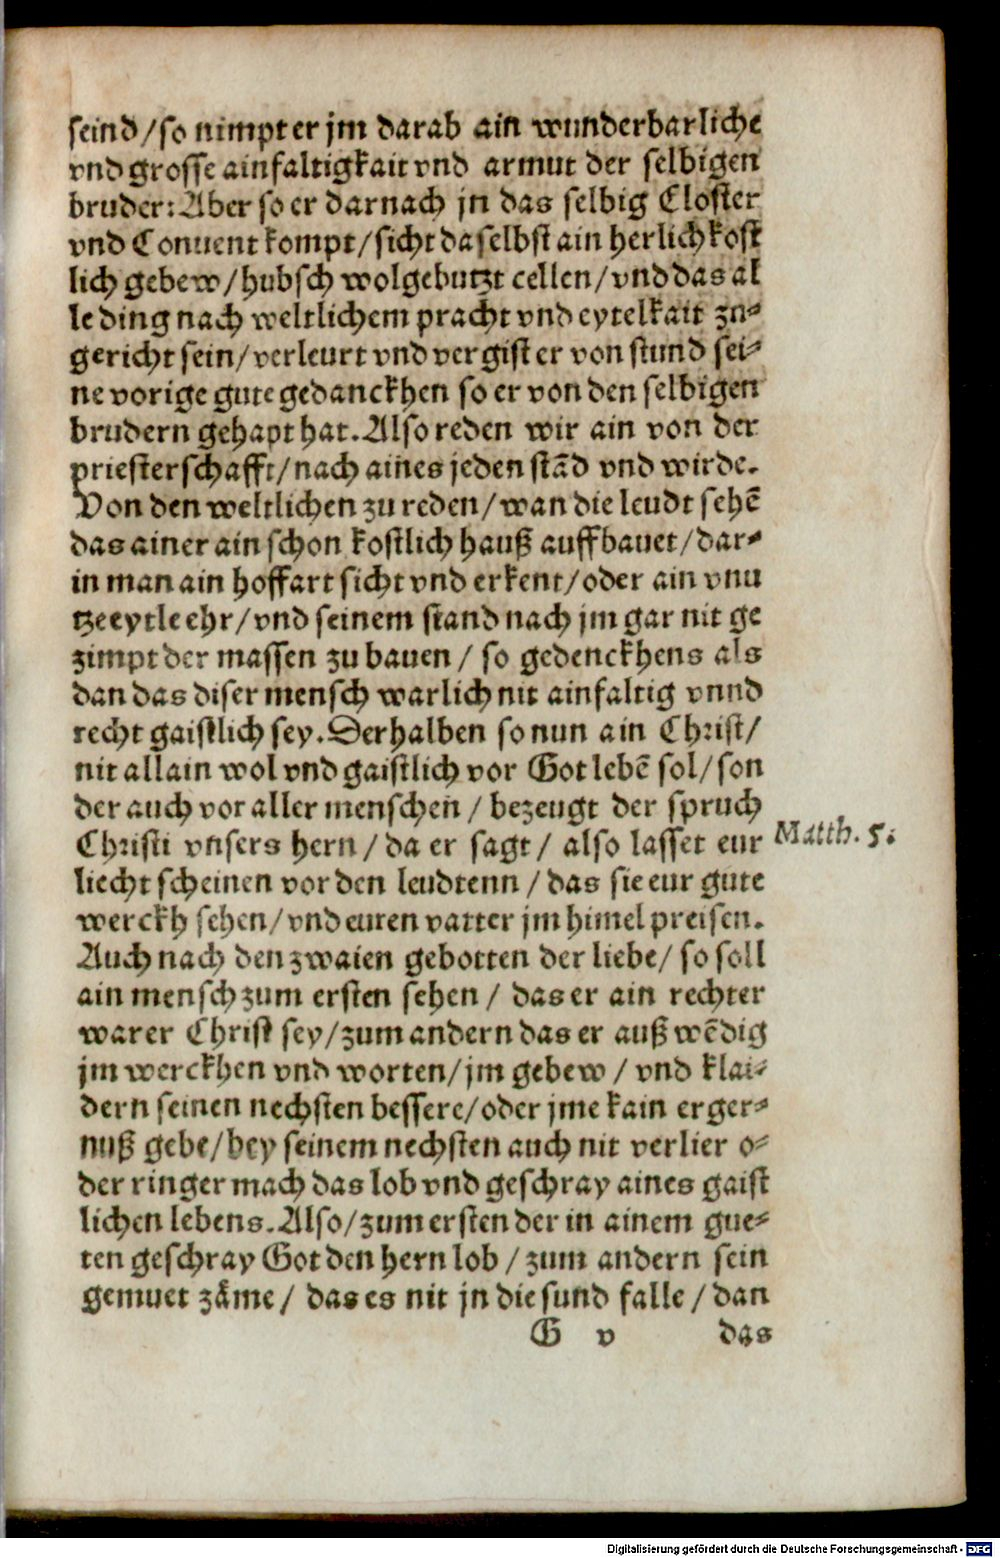 seind/so nimpt er jm darab ain wunderbarliche
vnd grosse ainfaltigkait vnd armut der selbigen
bruder: Aber so er darnach jn das selbig Closter
vnd Conuent kompt/sicht daselbst ain herlich kost
lich gebew/hubsch wolgebutzt cellen/vnd das al
le ding nach weltlichem pracht vnd eytelkait zu⸗
gericht sein/verleurt vnd vergist er von stund sei⸗
ne vorige gute gedanckhen so er von den selbigen
brudern gehapt hat. Also reden wir ain von der
priesterschafft/nach aines jeden stād vnd wirde.
Von den weltlichen zu reden/wan die leudt sehē
das ainer ain schon kostlich hauß auffbauet/dar⸗
in man ain hoffart sicht vnd erkent/oder ain vnu
tze eytle ehr/vnd seinem stand nach jm gar nit ge
zimpt der massen zu bauen/ so gedenckhens als
dan das diser mensch warlich nit ainfaltig vnnd
recht gaistlich sey. Derhalben so nun ain Christ/
nit allain wol vnd gaistlich vor Got lebē sol/son
der auch vor aller menschen/ bezeugt der spruch
Christi vnsers hern/da er sagt/ also lasset eur
liecht scheinen vor den leudtenn/das sie eur gute
werckh sehen/vnd euren vatter jm himel preisen.
Matth. 5.
Auch nach den zwaien gebotten der liebe/ so soll
ain mensch zum ersten sehen/ das er ain rechter
warer Christ sey/zum andern das er auß wēdig
jm werckhen vnd worten/jm gebew/ vnd klai⸗
dern seinen nechsten bessere/oder jme kain erger⸗
nuß gebe/bey seinem nechsten auch nit verlier o⸗
der ringer mach das lob vnd geschray aines gaist
lichen lebens. Also/zum ersten der in ainem gue⸗
ten geschray Got den hern lob/zum andern sein
gemuet zåme/ das es nit jn die sund falle/dan
G v das
Digitalisierung gefördert durch die Deutsche Forschungsgemeinschaft - DFG